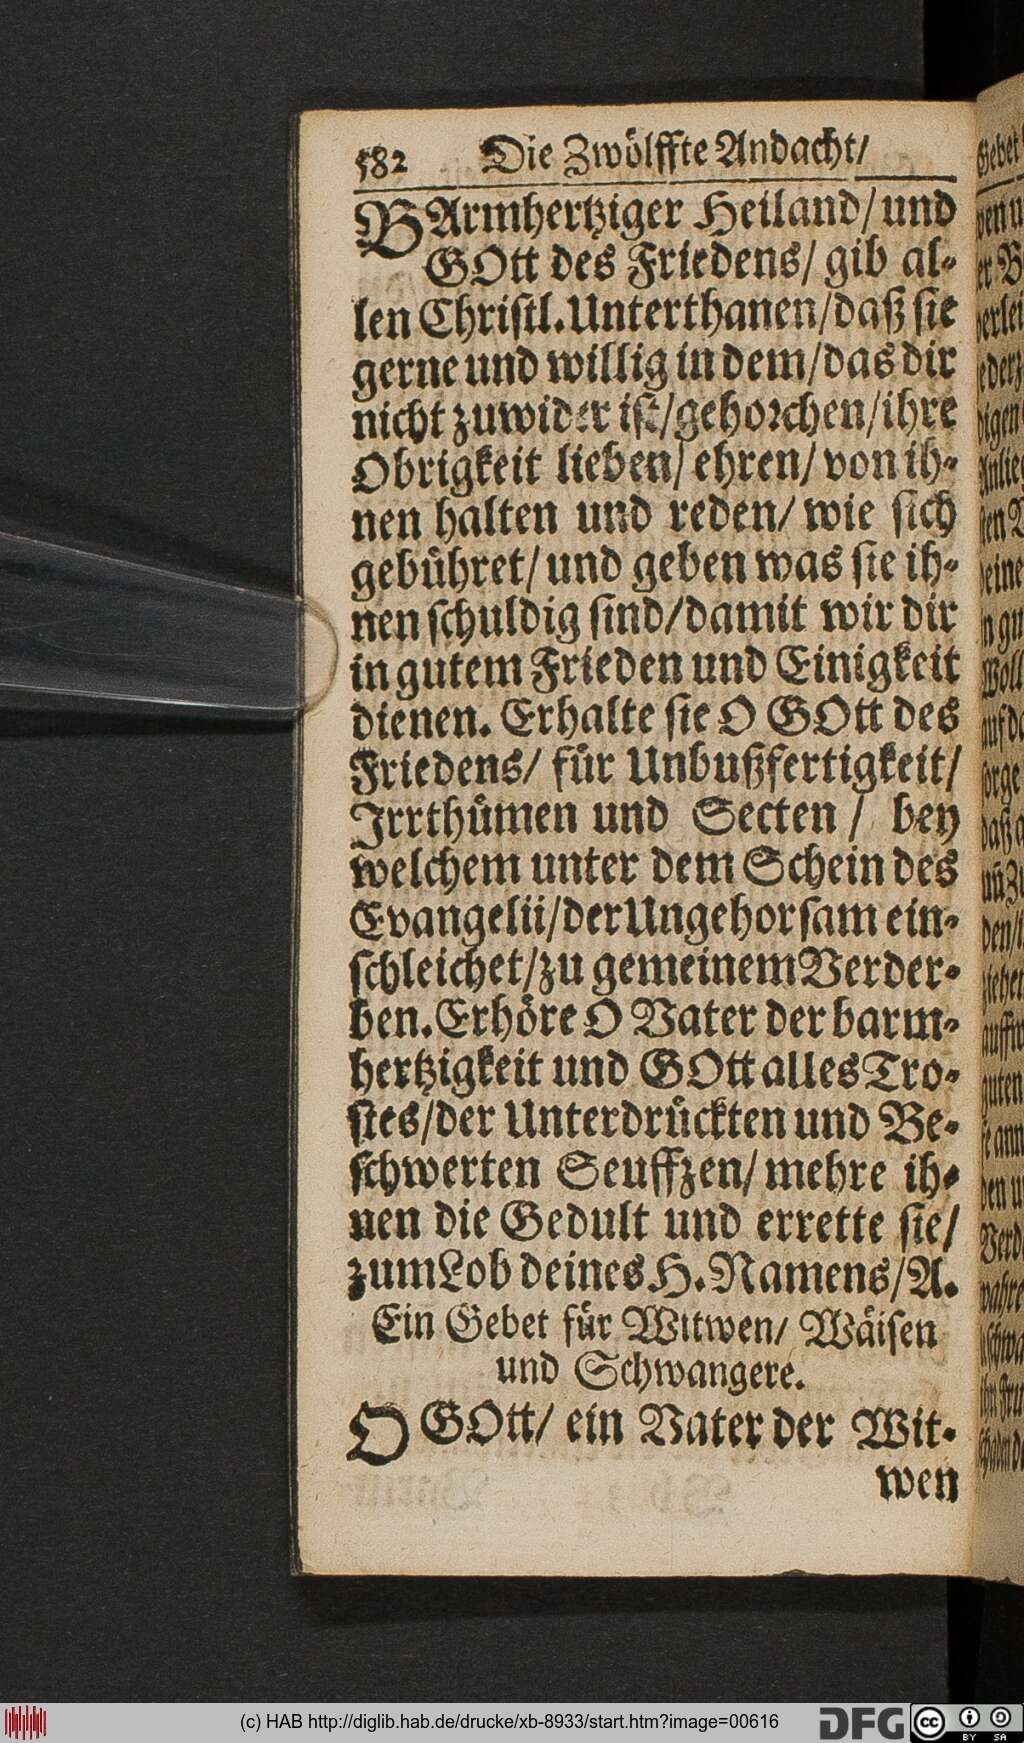 582 Die Zwölffte Andacht/
BArmhertziger Heiland/ und
GOtt des Friedens/ gib al-
len Christl. Unterthanen/ daß sie
gerne und willig in dem/ das dir
nicht zuwider ist/ gehorchen/ ihre
Obrigkeit lieben/ ehren/ von ih-
nen halten und reden/ wie sich
gebühret/ und geben was sie ih-
nen schuldig sind/ damit wir dir
in gutem Frieden und Einigkeit
dienen. Erhalte sie O GOtt des
Friedens/ für Unbußfertigkeit/
Irrthümen und Secten / bey
welchem unter dem Schein des
Evangelii/ der Ungehorsam ein-
schleichet/ zu gemeinem Verder-
ben. Erhöre O Vater der barm-
hertzigkeit und GOtt alles Tro-
stes/ der Unterdrückten und Be-
schwerten Seuffzen/ mehre ih-
nen die Gedult und errette sie/
zum Lob deines H. Namens/ A.
Ein Gebet für Witwen/ Wäisen
und Schwangere.
O GOtt/ ein Vater der Wit-
wen
(c) HAB http://diglib.hab.de/drucke/xb-8933/start.htm?image=00616
DFG cc BY SA